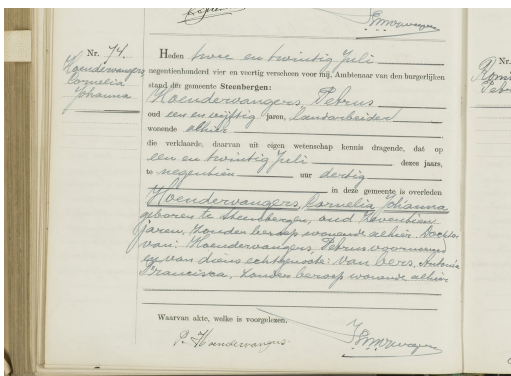 Nr. 74.
Hoendervangers
Cornelia
Johanna
Heden twee en twintig Juli
negentienhonderd vier en veertig verscheen voor mij, Ambtenaar van den burgerlijken
stand der gemeente Steenbergen:
Hoendervangers, Petrus
oud een en vijftig jaren, landarbeider
wonende alhier
die verklaarde, daarvan uit eigen wetenschap kennis dragende, dat op
een en twintig Juli dezes jaars,
te negentien uur dertig
in deze gemeente is overleden
Hoendervangers, Cornelia Johanna
geboren te Steenbergen, oud zeventien
jaren, zonder beroep wonende alhier. Dochter
van: Hoendervangers, Petrus voornoemd
en van diens echtgenoote: van Oers, Antonia
Francisca, zonder beroep wonende alhier.
Waarvan akte, welke is voorgelezen.
P. Hoendervangers
Nr.